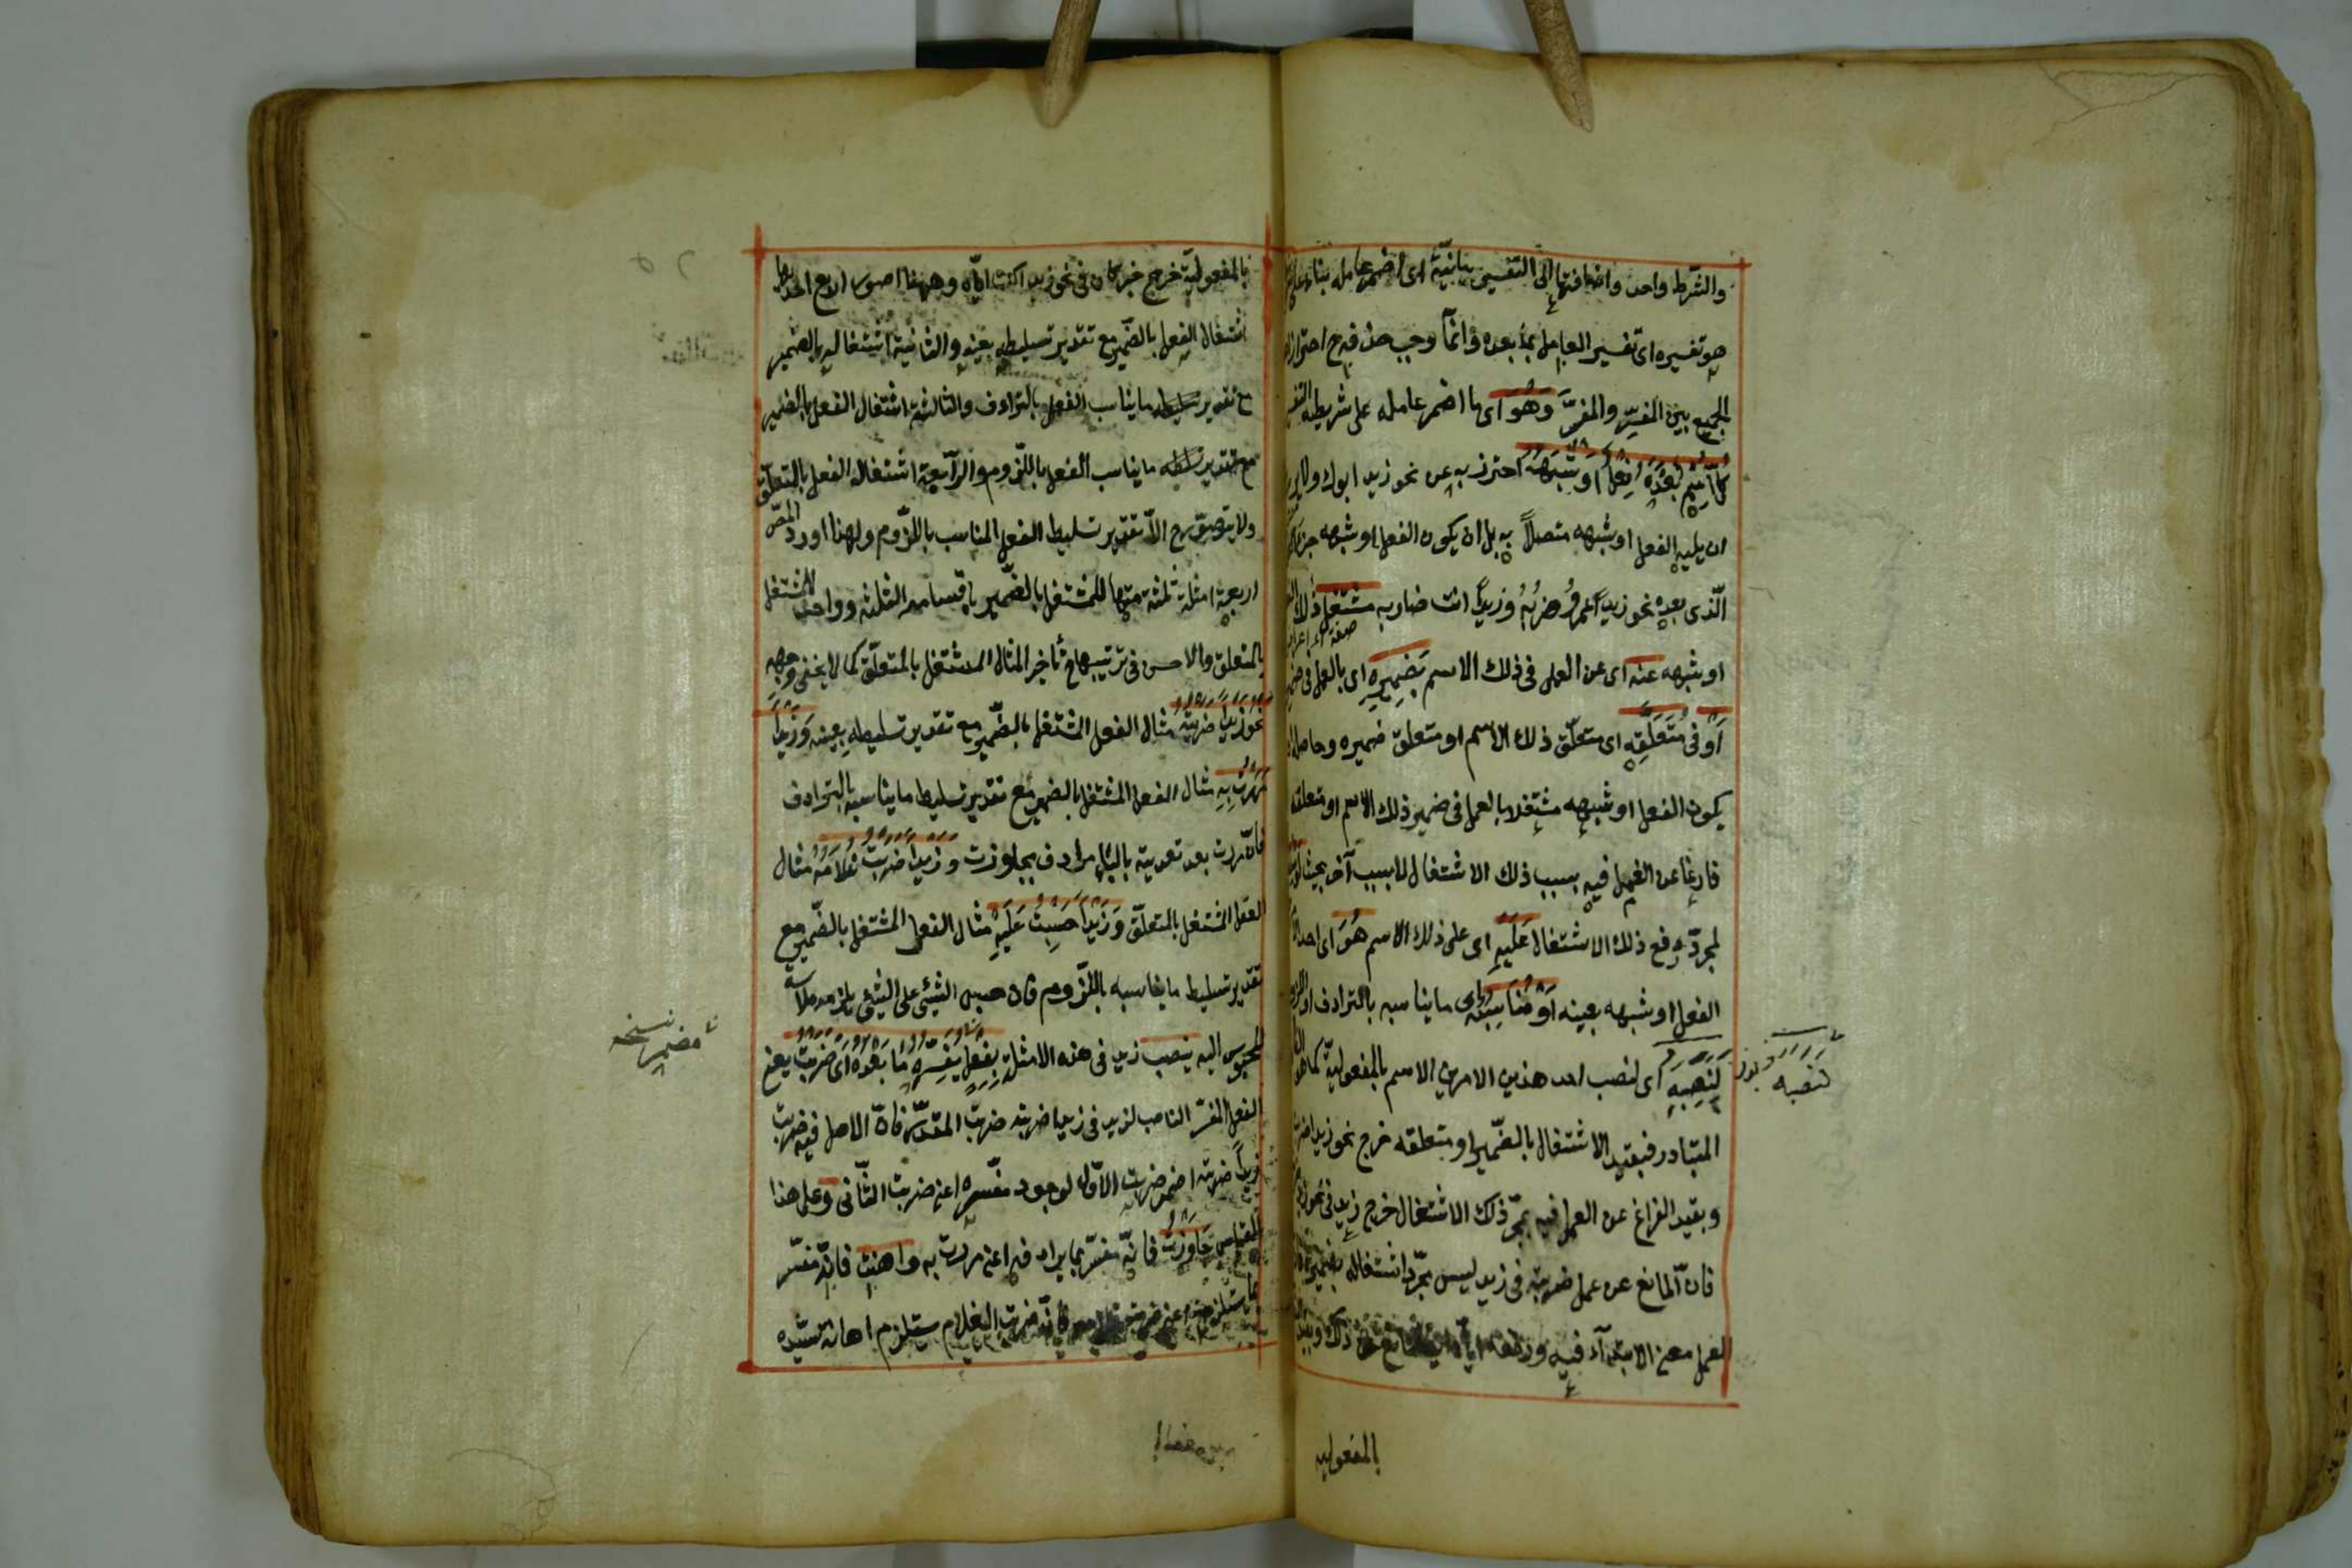 والشرط واحد واضافتها الى التفسير بيانية اى اضمر عامله بناء على
هو تفسيره اى تفسير العامل بما بعده وانما وجب حذفه ح احترازا
الجمع بين المفسِّر والمفسَّر وهو اى ما اضمر عامله على شريطة التفسير
كل اسم بعده فعل او شبهه احترز به عن نحو زيد ابوك ولا يريد
ان يليه الفعل او شبهه متصلاً به بل ان يكون الفعل او شبهه جزء
الّذى بعده نحو زيداً عمرو ضربه وزيداً انت ضاربه مشتغل ذلك الفعل
او شبهه عنه اى عن العمل فى ذلك الاسم بضميره اى بالعمل فى ضمير
او فى متعلقه اى متعلّق ذلك الاسم او متعلق ضميره وحاصله ان
يكون الفعل او شبهه مشتغلا بالعمل فى ضمير ذلك الاسم او متعلقه
فارغا عن العمل فيه بسبب ذلك الاشتغال لا بسبب آخر بحيث لو سلط
لمجرّد رفع ذلك الاشتغال عليه اى على ذلك الاسم هو اى احد
الفعل او شبهه بعينه او مناسبه اى ما يناسبه بالترادف او اللزوم
لنصبه اى لنصب احد هذين الامرين الاسم بالمفعولية كما هو
لنصبه
المتبادر فبقيد الاشتغال بالضّمير او متعلقه خرج نحو زيدا ضربت
وبقيد الفراغ عن العمل فيه بمجرّد ذلك الاشتغال خرج زيد فى نحو زيد
فان المانع عن عمل ضربته فى زيد ليس مجرّد اشتغاله بضميره
العمل معنى الابتداء فيه ورفعه اياه ذلك وبقيد
بالمفعوليه
بالمفعوليّة خرج خبر كان فى نحو زيد اكنت ايّاه وههنا صور اربع احديها
اشتغال الفعل بالضّمير مع تقدير تسليطه بعينه والثانية اشتغاله بالضمير
مع تقدير تسليط ما يناسب الفعل بالترادف والثالثة اشتغال الفعل بالضمير
مع تقدير تسليط ما يناسب الفعل باللّزوم والرّابعة اشتغال الفعل بالمتعلّق
ولا يتصوّر ح الّا تقدير تسليط الفعل المناسب باللّزوم ولهذا اورد المصّ
اربعة امثلة ثلثة منها للمشتغل بالضّمير باقسامه الثلثة وواحد للمشتغل
بالمتعلق والاحسن فى ترتيبها تأخير المثال المشتغل بالمتعلّق كما لا يخفى وجهه
نحو زيدا ضربته مثال الفعل المشتغل بالضّمير مع تقدير تسليطه بعينه وزيدا
مررت به مثال الفعل المشتغل بالضمير مع تقدير تسليط ما يناسبه بالترادف
فانّ مررت بعد تعديته بالباء مرادف بجاوزت وزيدا ضربت غلامه مثال
الفعل المشتغل بالمتعلّق وزيدا حبست عليه مثال الفعل المشتغل بالضّمير مع
تقدير تسليط ما يناسبه باللّزوم فان حبس الشّيئ على الشّيئ يلزمه ملابسة
المحبوس اليه ينصب زيد فى هذه الامثلة بفعل يفسره ما بعده اى ضربت يعنى
مضمر نسخه
الفعل المفسّر الناصب لزيد فى زيدا ضربته ضربت المقدّر فانّ الاصل فيه ضربت
زيداً ضربته اضمر ضربت الاوّل لوجود مفسّره اعنى ضربت الثّانى وعلى هذا
القياس جاوزت فانّه مفسّر بما يرادفه اعنى مررت به واهنت فانّه مفسّر
بما يستلزمه اعنى ضربت غلامه فانّه ضرب الغلام يستلزم اهانة سيّده